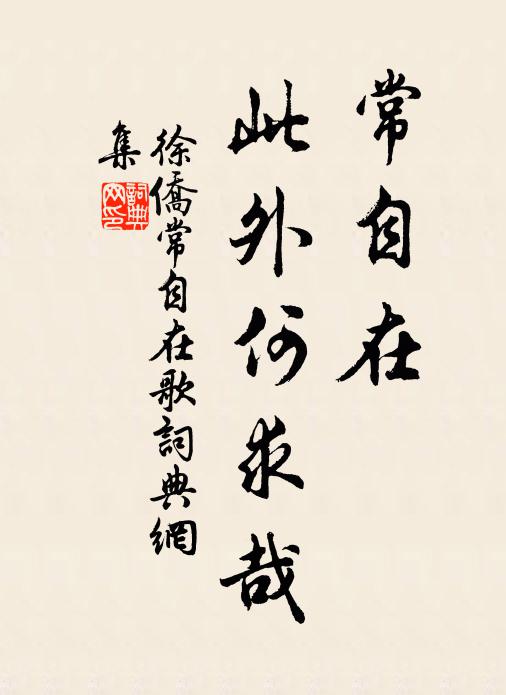 常自在
此外何求哉
徐僑常自在歌詞典網
集
詞典
网印